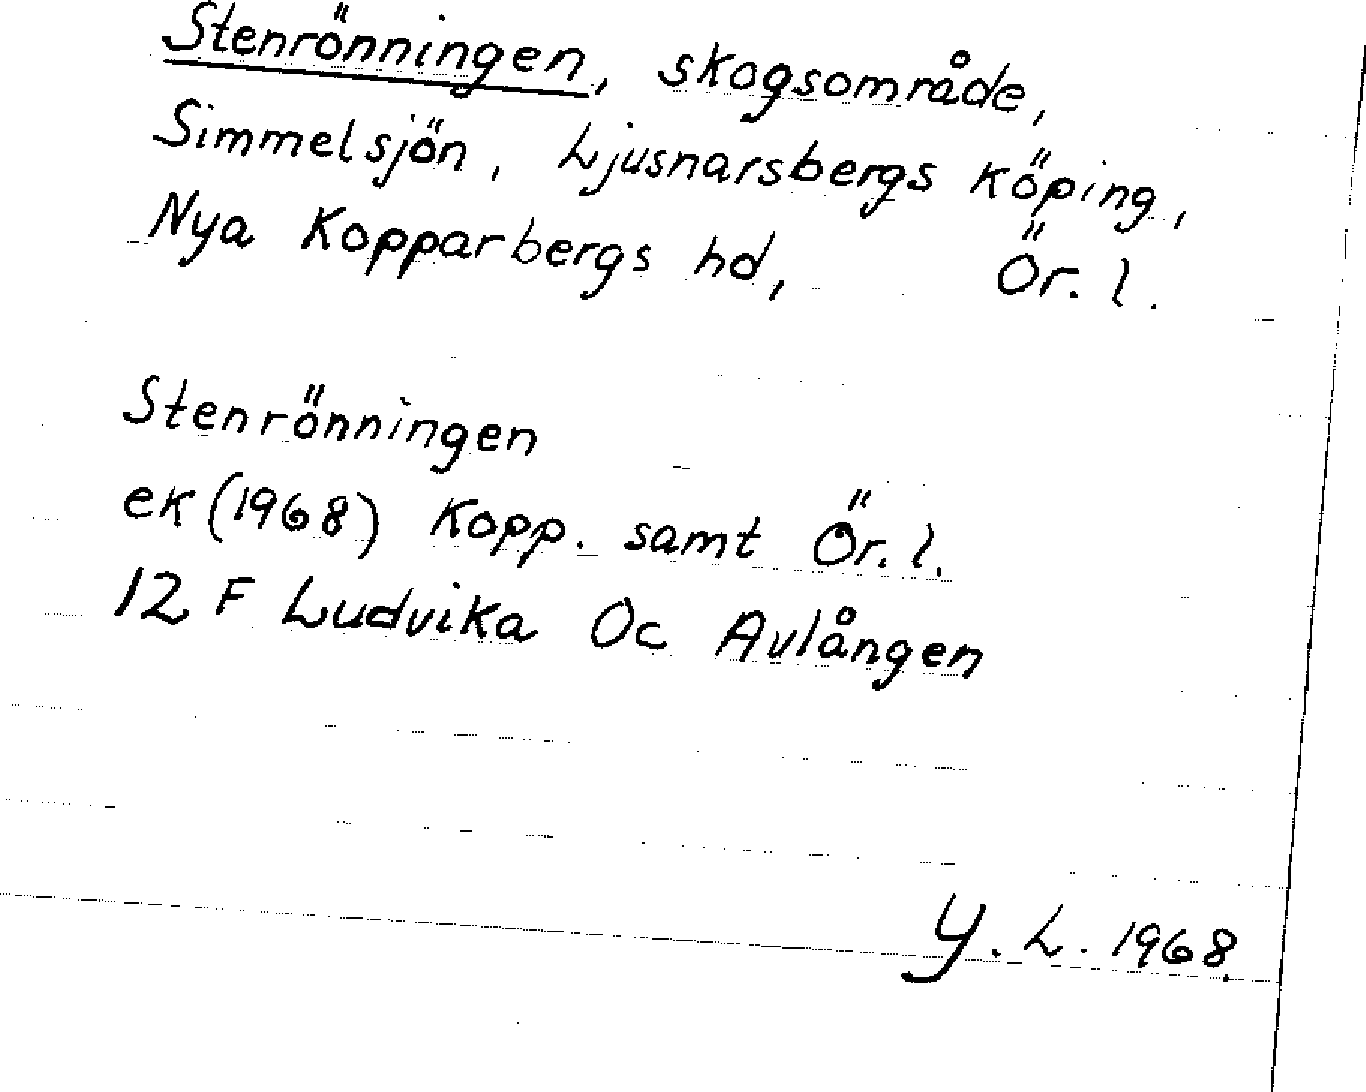 Stenrönningen, skogsområde,
Simmelsjön, Ljusnarsbergs köping,
Nya Kopparbergs hd, Ör. l.
Stenrönningen
ek (1968) Kopp. samt Ör. l.
12 F Ludvika Oc Avlången
Y. L. 1968.